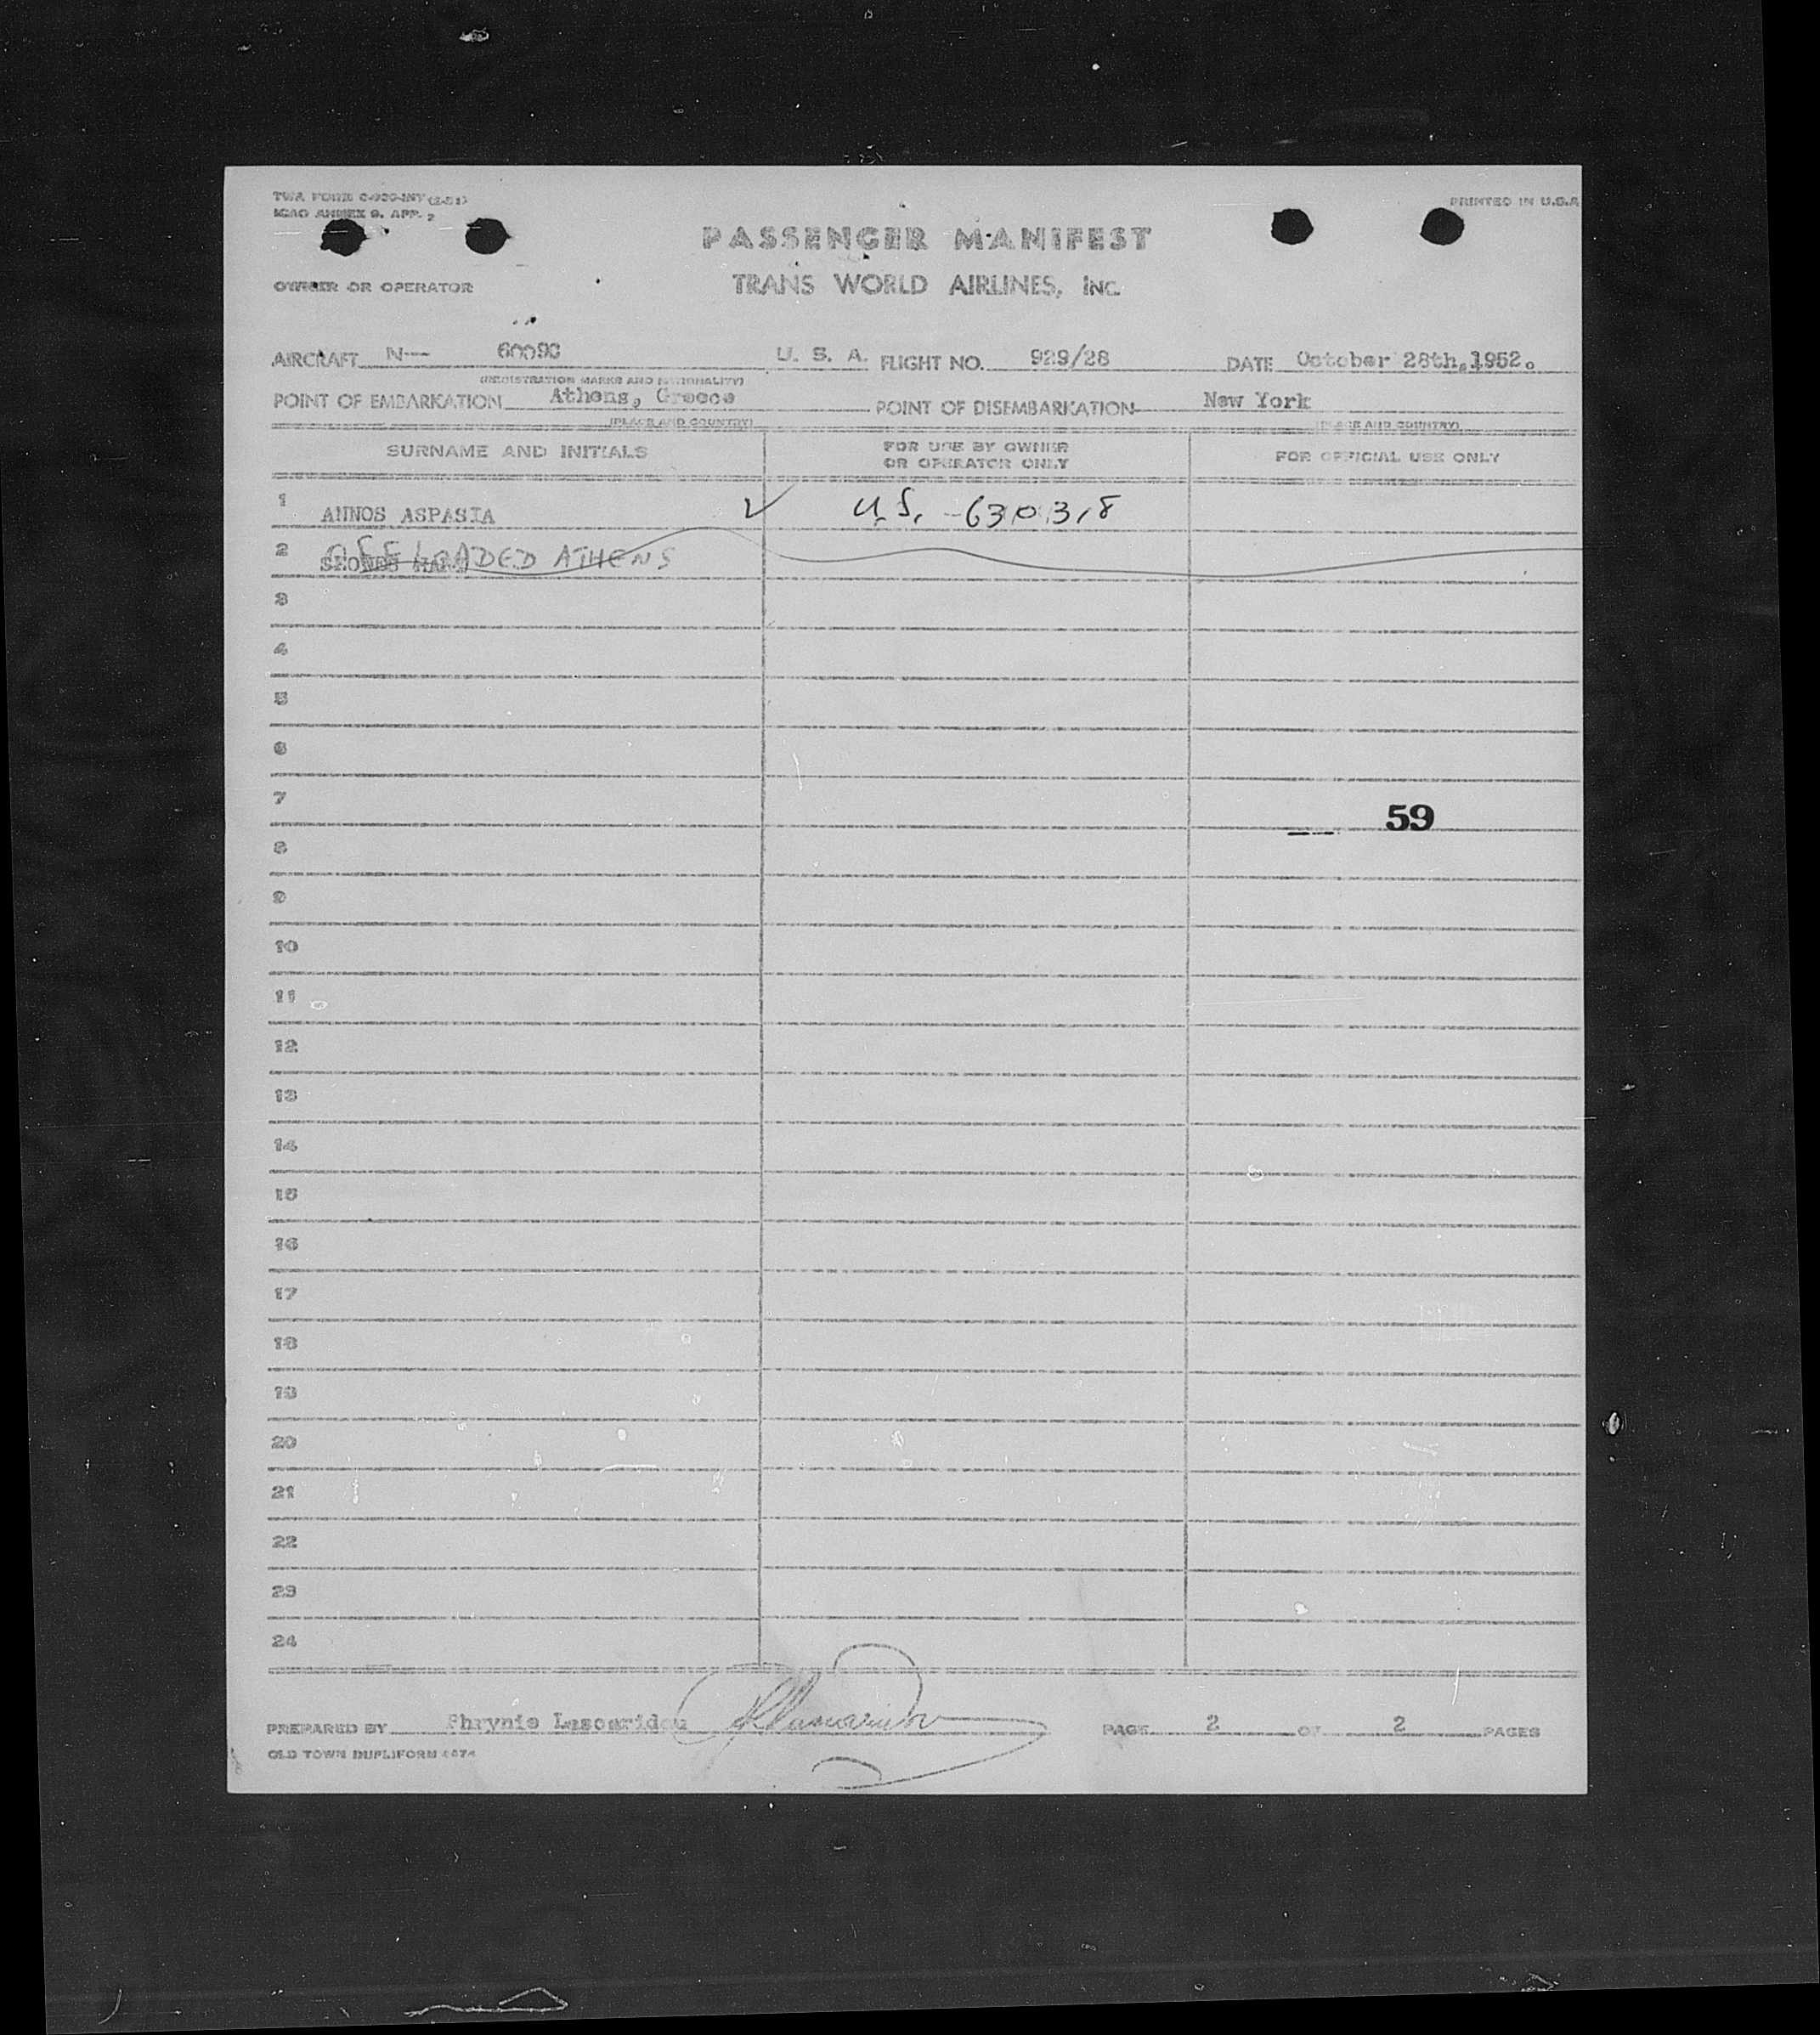 TWA FORM C-930-INT (2-51)
ICAO ANNEX 9. APP. 2
PRINTED IN U.S.A
PASSENGER MANIFEST
OWNER OR OPERATOR
TRANS WORLD AIRLINES, INC.
AIRCRAFT N-- 60090 U. S. A. FLIGHT NO. 929/28 DATE October 28th, 1952.
(REGISTRATION MARKS AND NATIONALITY)
POINT OF EMBARKATION Athens, Greece POINT OF DISEMBARKATION New York
(PLACE AND COUNTRY) (PLACE AND COUNTRY)
SURNAME AND INITIALS FOR USE BY OWNER OR OPERATOR ONLY FOR OFFICIAL USE ONLY
1 ANNOS ASPASIA U.S. - 630318
2 OFF LOADED ATHENS
3
4
5
6
7
59
8
9
10
11
12
13
14
15
16
17
18
19
20
21
22
23
24
PREPARED BY Phrynie Lascaridou PAGE 2 OF 2 PAGES
OLD TOWN DUPLIFORM